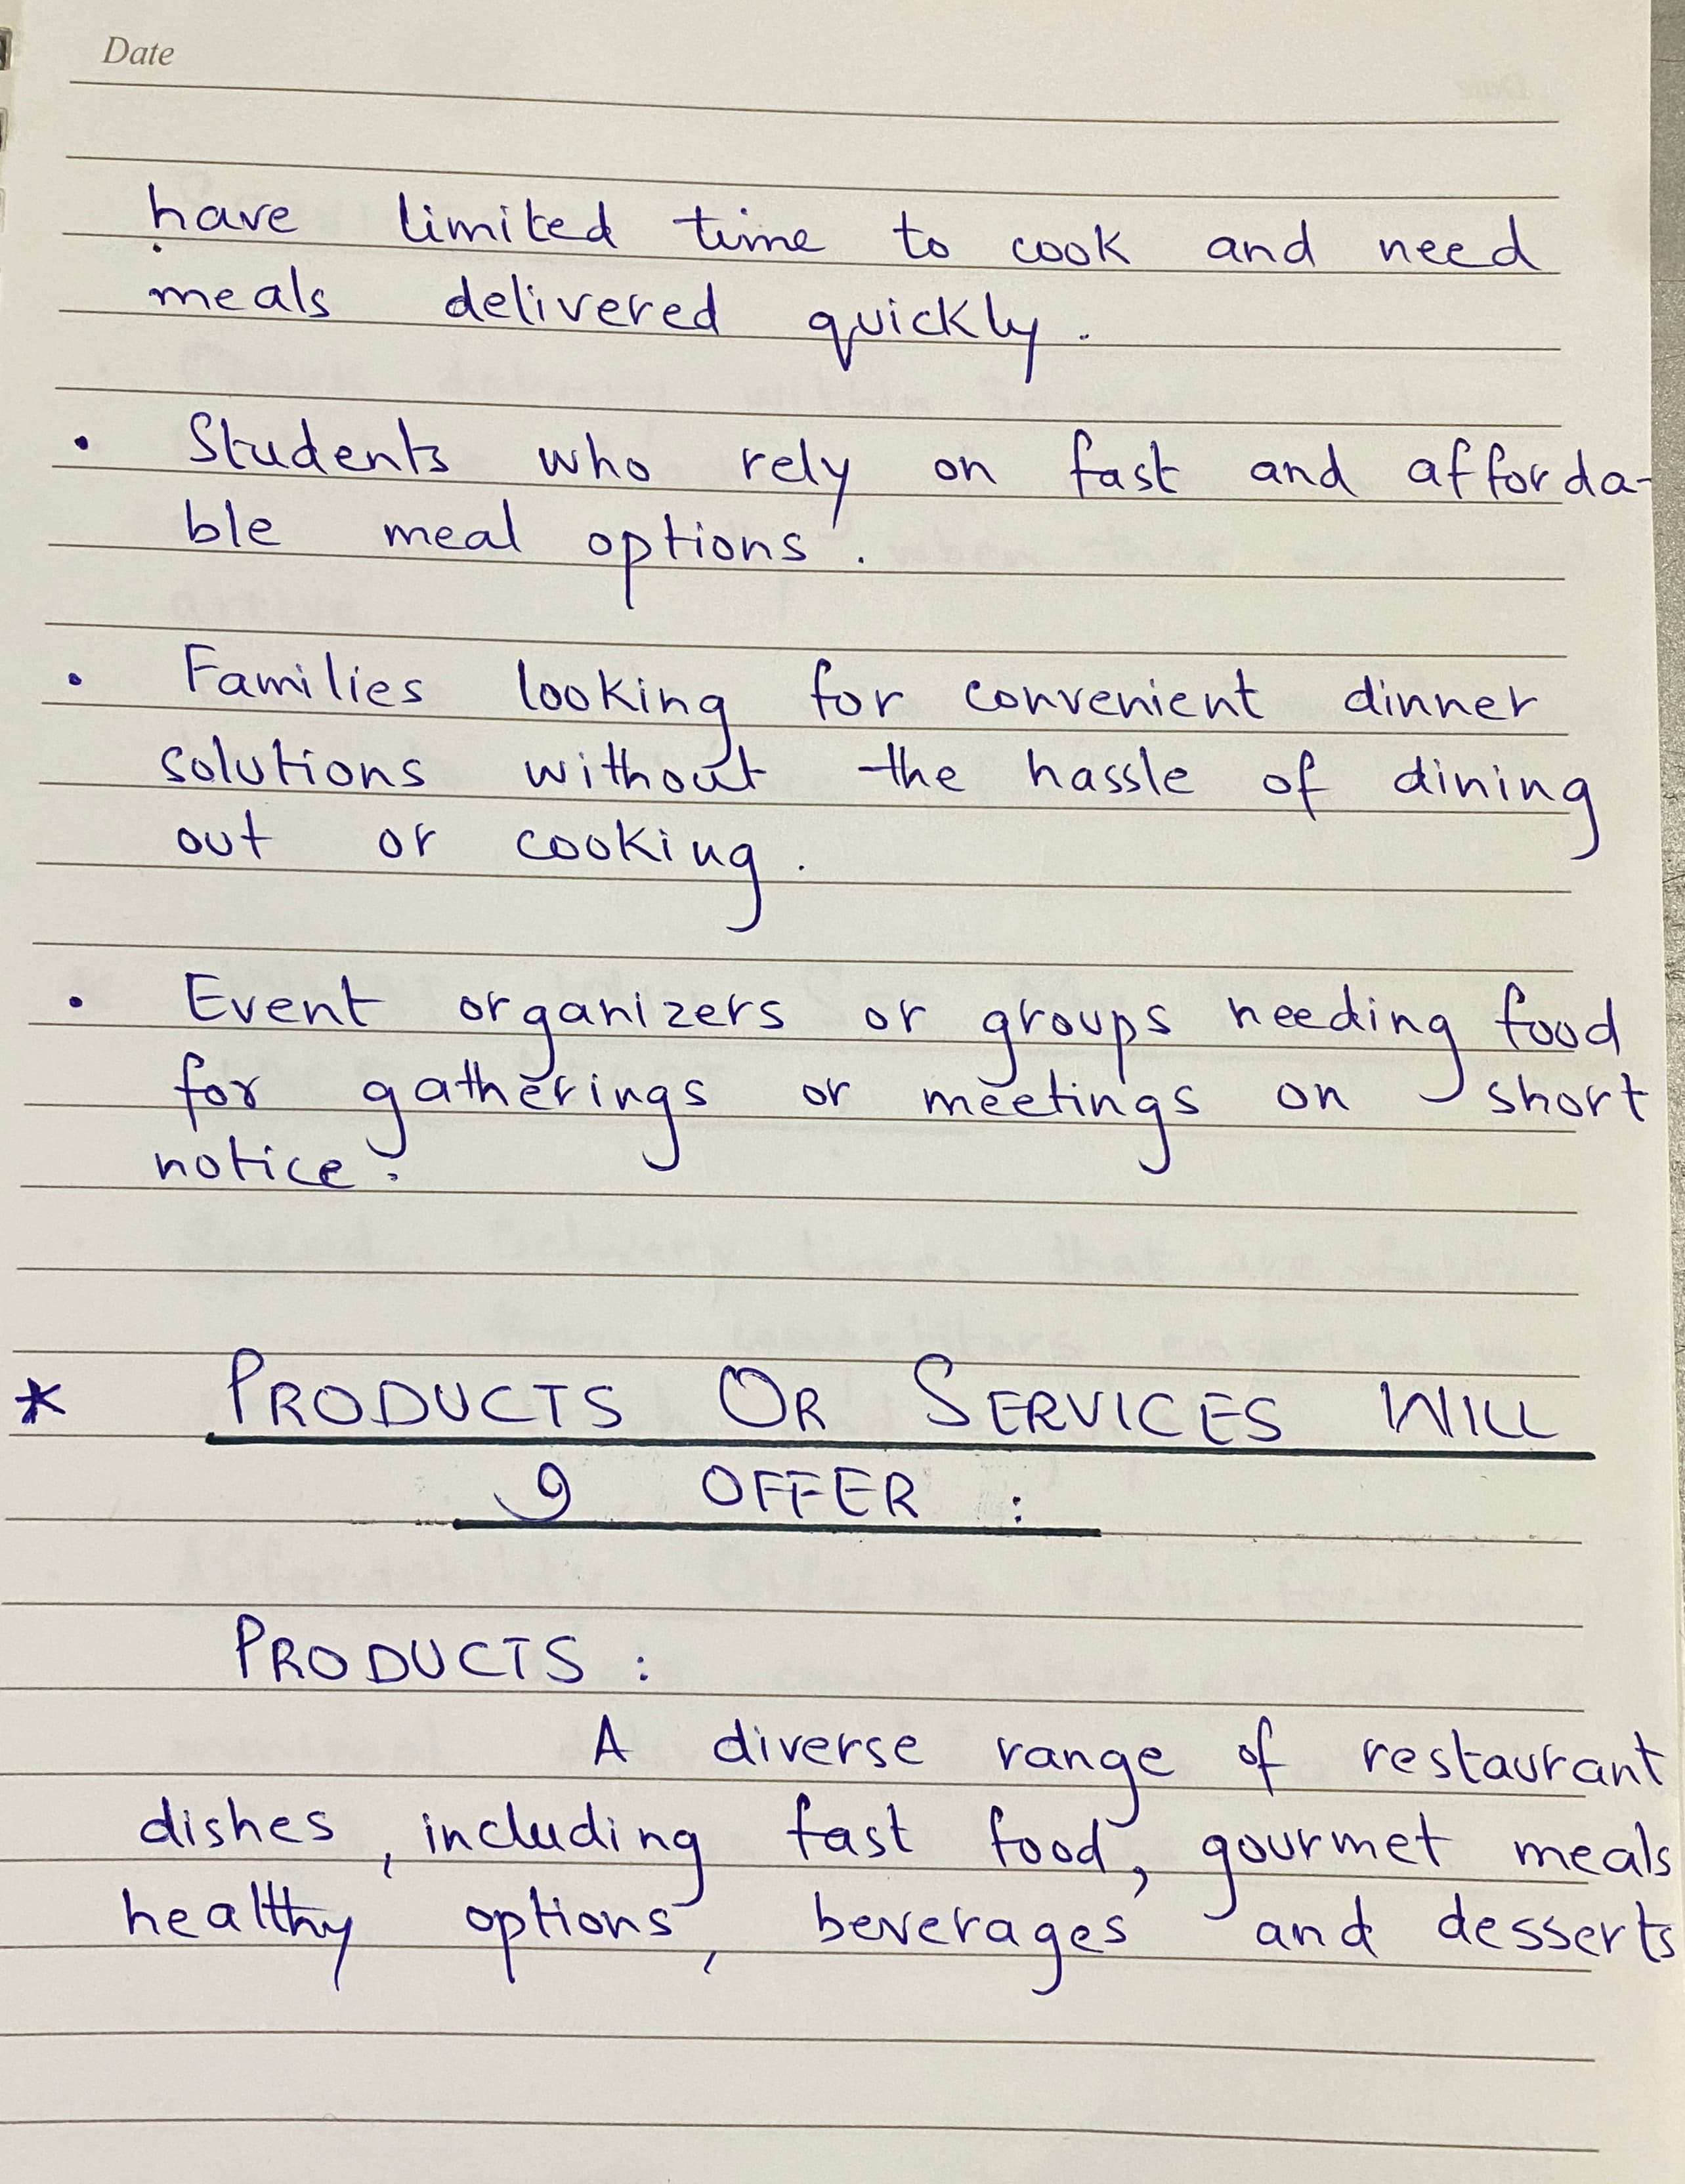 Date
have limited time to cook and need
meals delivered quickly.
• Students who rely on fast and afforda-
ble meal options.
• Families looking for convenient dinner
solutions without the hassle of dining
out or cooking.
• Event organizers or groups needing food
for gatherings or meetings on short
notice.
* PRODUCTS OR SERVICES WILL
I OFFER :
PRODUCTS :
A diverse range of restaurant
dishes, including fast food, gourmet meals
healthy options, beverages and desserts